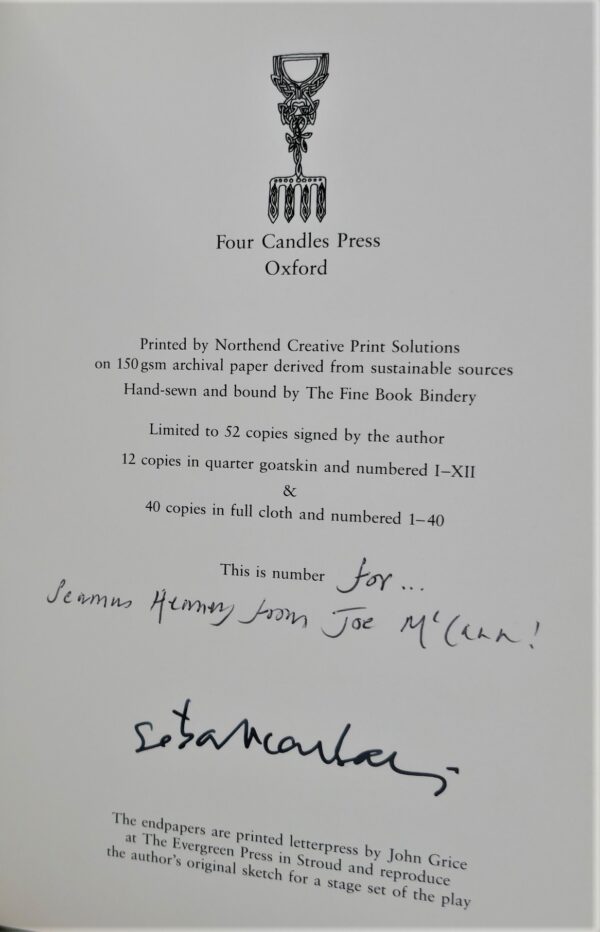 Four Candles Press
Oxford
Printed by Northend Creative Print Solutions
on 150gsm archival paper derived from sustainable sources
Hand-sewn and bound by The Fine Book Bindery
Limited to 52 copies signed by the author
12 copies in quarter goatskin and numbered I–XII
&
40 copies in full cloth and numbered 1–40
This is number for...
Seamus Heaney from Joe McCann!
Sebastian Barry
The endpapers are printed letterpress by John Grice
at The Evergreen Press in Stroud and reproduce
the author's original sketch for a stage set of the play